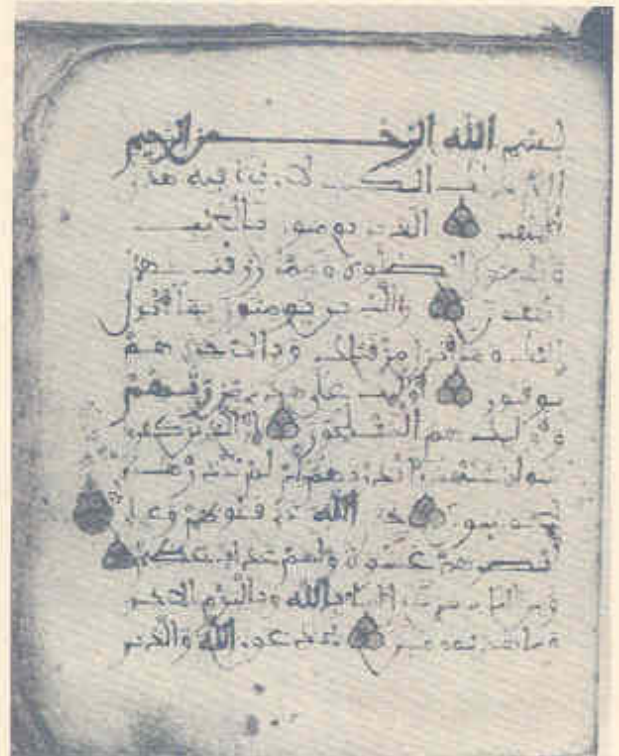 بسم الله الرحمن الرحيم
الم ذلك الكتب لا ريب فيه هدى
للمتقين الذين يومنون بالغيب
ويقيمون الصلوة ومما رزقنهم
ينفقون والذين يومنون بما أنزل
إليك وما أنزل من قبلك وبالاخرة هم
يوقنون أوليك على هدى من ربهم
وأوليك هم المفلحون إن الذين كفروا
سوا عليهم أنذرتهم أم لم تنذرهم
لا يومنون ختم الله على قلوبهم وعلى
أبصرهم غشوة ولهم عذاب عظيم
ومن الناس من يقول امنا بالله وباليوم الاخر
وما هم بمومنين يخدعون الله والذين